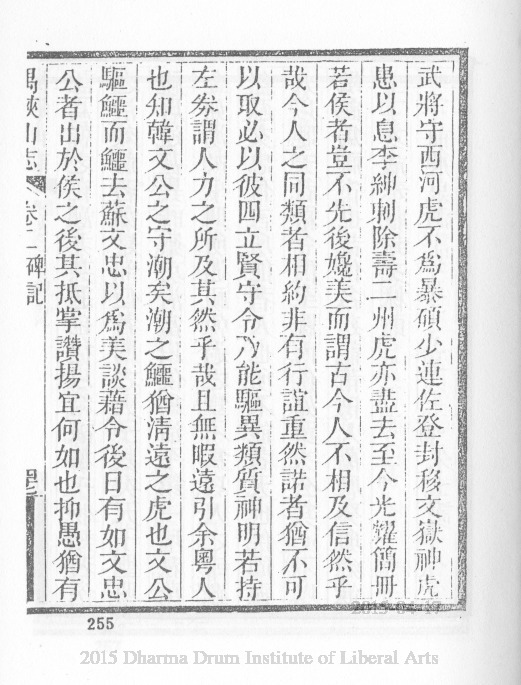 武將守西河虎不爲暴碩少連佐登封移文嶽神虎
患以息李紳刺除壽二州虎亦盡去至今光耀簡冊
若侯者豈不先後媲美而謂古今人不相及信然乎
哉今人之同類者相約非有行誼重然諾者猶不可
以取必以彼四立賢守令乃能驅異類質神明若持
左券謂人力之所及其然乎哉且無暇遠引余粵人
也知韓文公之守潮矣潮之鱷猶淸遠之虎也文公
驅鱷而鱷去蘇文忠以爲美談藉令後日有如文忠
公者出於侯之後其抵掌讚揚宜何如也抑愚猶有
禺峽山志 卷二 碑記
255
2015 Dharma Drum Institute of Liberal Arts